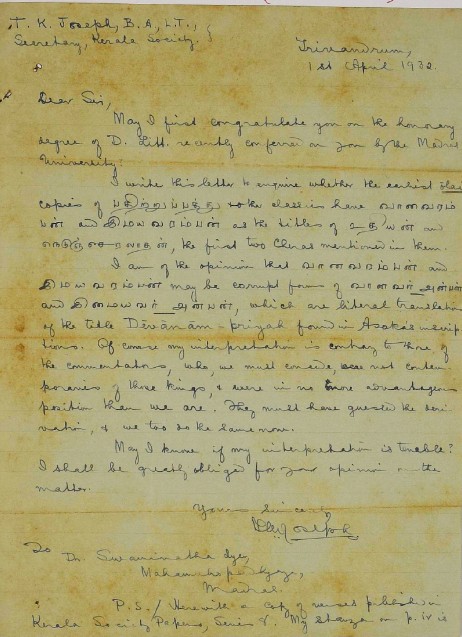 T. K. Joseph, B.A., L.T.,
Secretary, Kerala Society.
Trivandrum,
1st April 1932.
Dear Sir,
May I first congratulate you on the honorary
degree of D. Litt. recently conferred on you by the Madras
University?
I write this letter to enquire whether the earliest
copies of பதிற்றுப்பத்து the classics have வானவரம்
பன் and இமயவரம்பன் as the titles of உதியன் and
நெடுஞ்சேரலாதன், the first two Cheras mentioned in them.
I am of the opinion that வானவரம்பன் and
இமயவரம்பன் may be corrupt forms of வானவர் அன்பன்
and இமையவர் அன்பன், which are literal translations
of the title Dēvānām-priyah found in Asoka's inscrip
tions. Of course my interpretation is contrary to those of
the commentators, who, we must concede, were not contem
poraries of those kings, & were in no more advantageous
position than we are. They must have guessed the deri
vation, & we too do the same now.
May I know if my interpretation is tenable?
I shall be greatly obliged for your opinion on the
matter.
Yours sincerely
T.K. Joseph
To
Dr. Swaminatha Iyer,
Mahamahopadhyaya,
Madras.
P.S./ Herewith a copy of verses published in
Kerala Society Papers, Series 8. My stanza on p. iv is